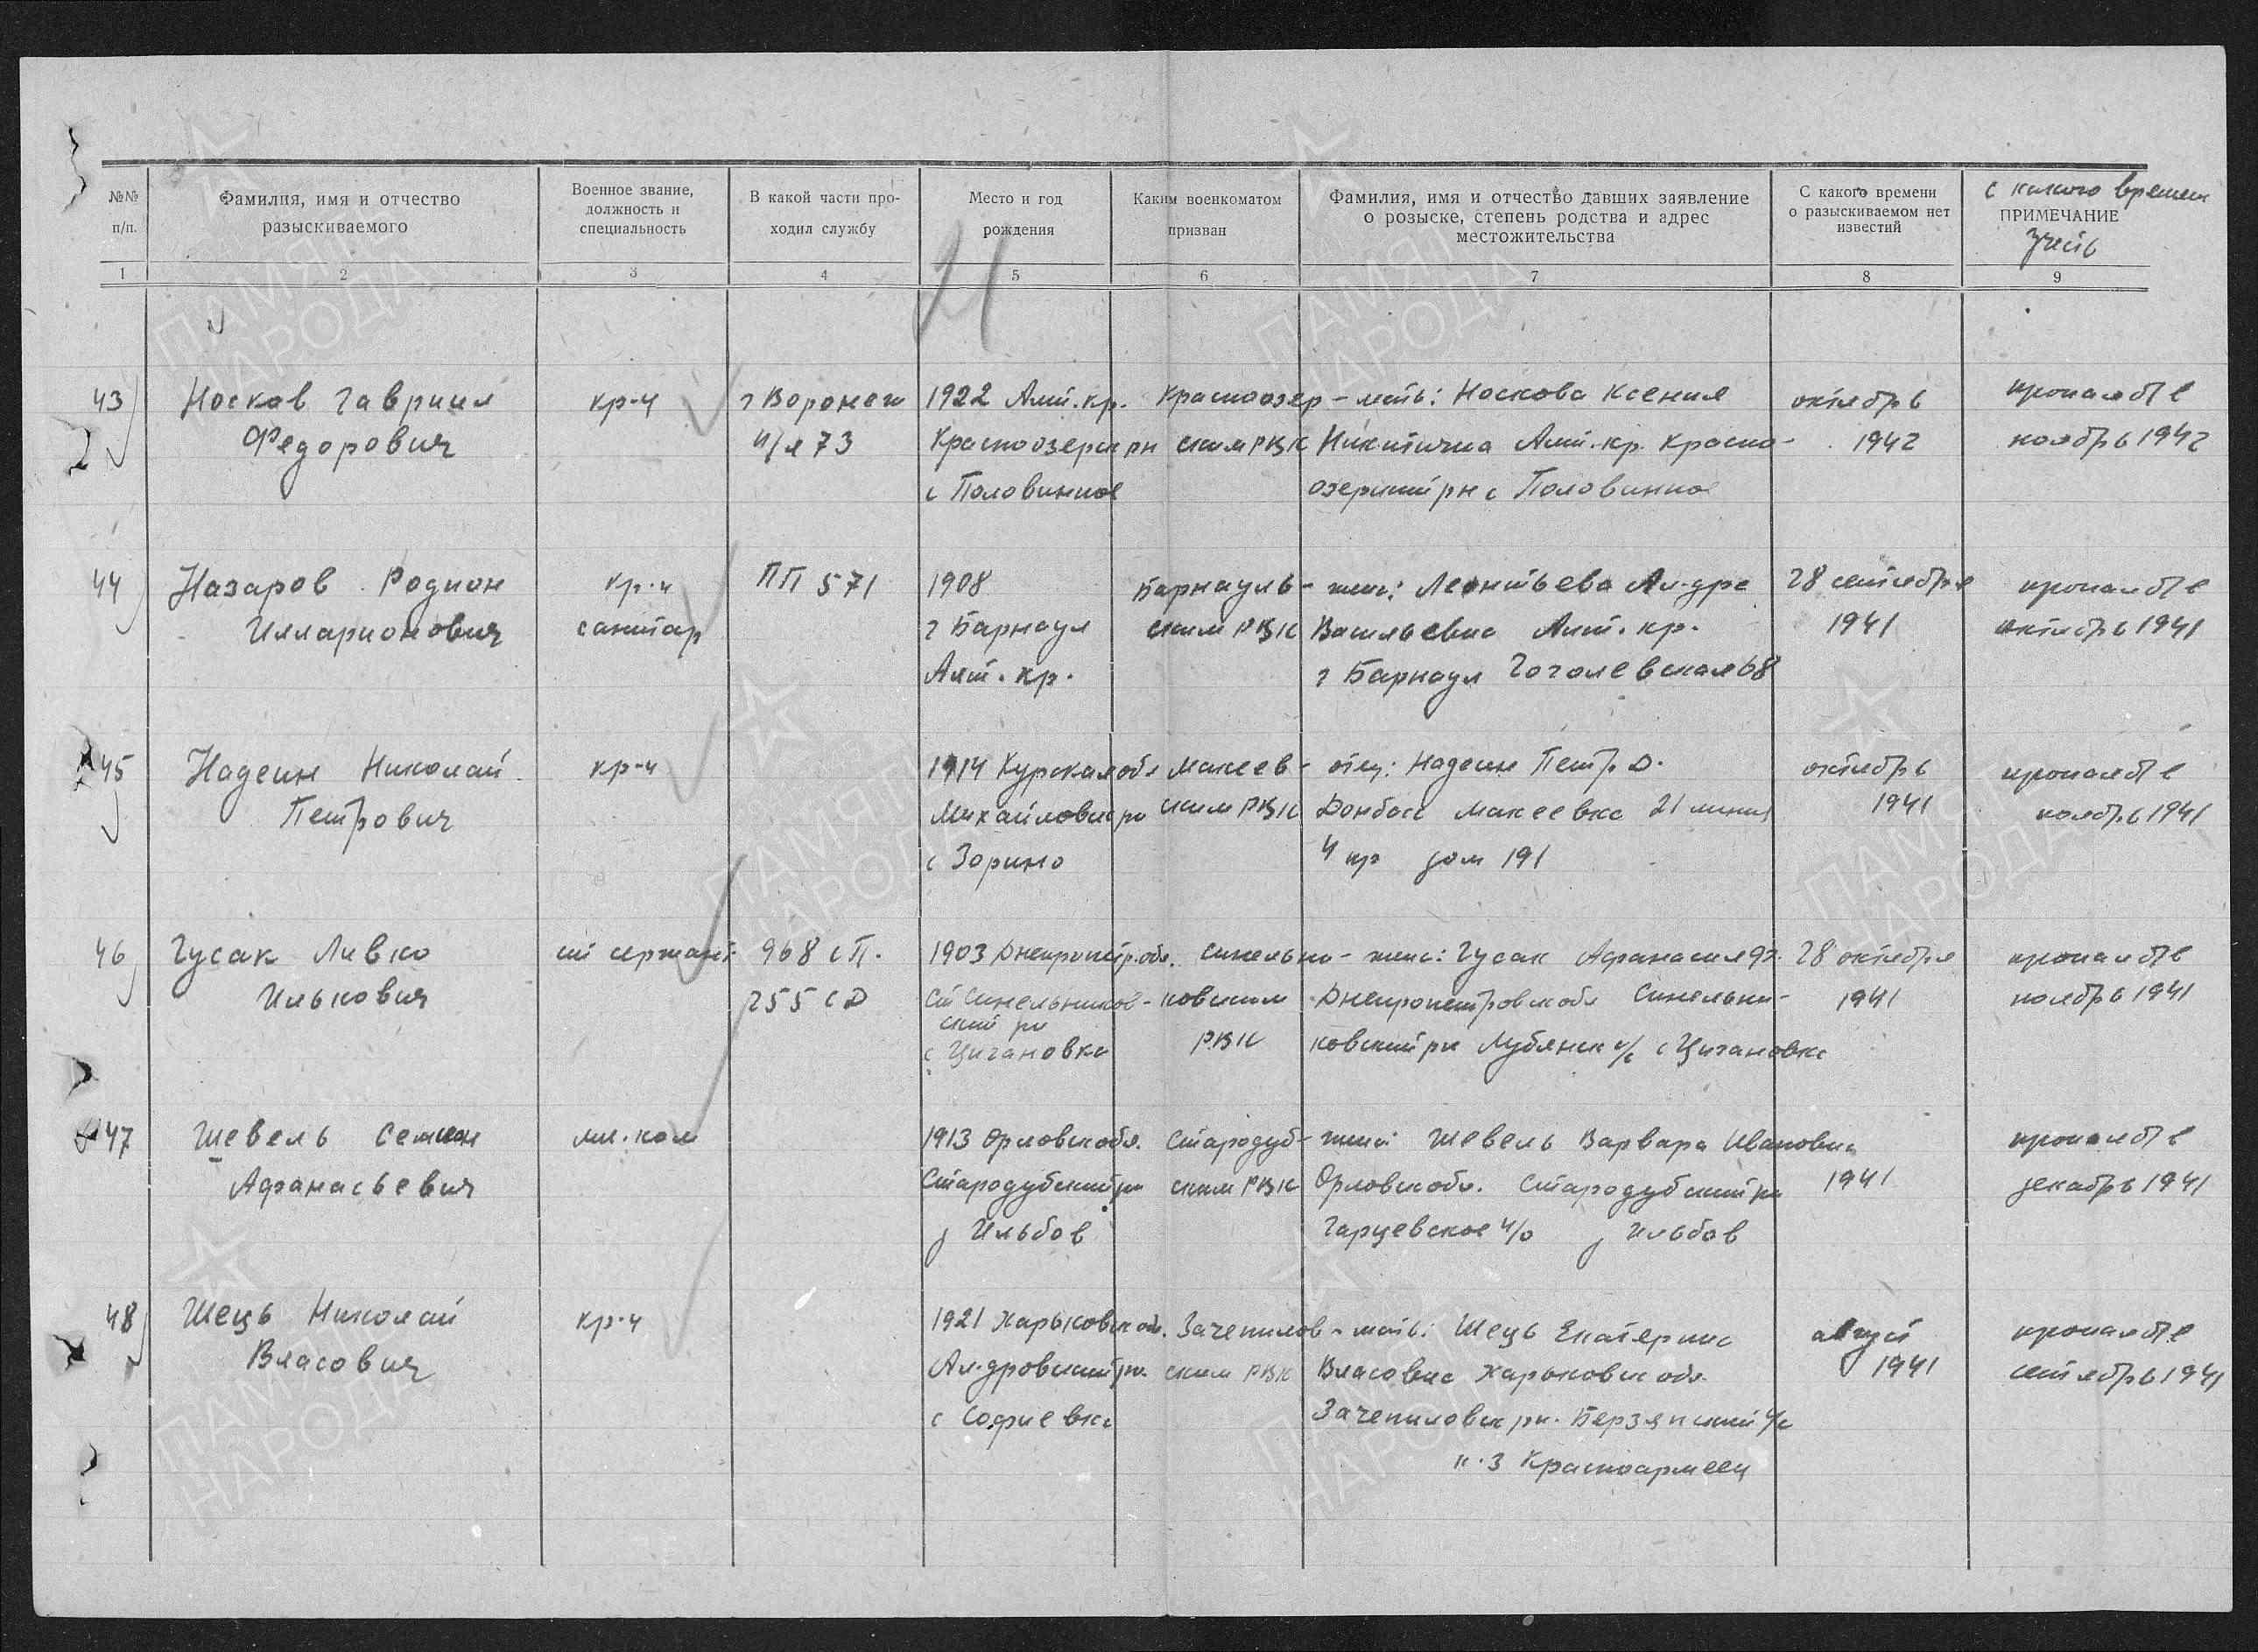 №№
п/п.
Фамилия, имя и отчество
разыскиваемого
Военное звание,
должность и
специальность
В какой части про-
ходил службу
Место и год
рождения
Каким военкоматом
призван
Фамилия, имя и отчество давших заявление
о розыске, степень родства и адрес
местожительства
С какого времени
о разыскиваемом нет
известий
с какого времени
ПРИМЕЧАНИЕ
1 2 3 4 5 6 7 8 9
43 Носков Гавриил кр-ц г Воронеж 1922 Алт. кр. Красноозер- мать: Носкова Ксения октябрь пропал б/в
Федорович п/я 73 Краснозерск рн ским РВК Никитична Алт. кр. Красно- 1942 ноябрь 1942
с Половинное озерский рн с Половинное
44 Назаров Родион кр-ц ПП 571 1908 Барнауль- жена: Леонтьева Ал-дра 28 сентября пропал б/в
Илларионович санитар г Барнаул ским РВК Васильевна Алт. кр. 1941 октябрь 1941
Алт. кр. г Барнаул Гоголевская 68
45 Надеин Николай кр-ц 1914 Курская обл Макеев- отец: Надеин Петр Д. октябрь пропал б/в
Петрович Михайловск рн ским РВК Донбасс Макеевка 21 линия 1941 ноябрь 1941
с Зорино дом 191
46 Гусак Ливко ст сержант 968 сп. 1903 Днепропетр. обл. Синельни- жена: Гусак Афанасия 28 октября пропал б/в
Илькович 255 СД ст Синельников- ковским Днепропетровск обл Синельни- 1941 ноябрь 1941
ский рн
с Цигановка РВК ковский рн Лубянск с/с с Цигановка
47 Шевель Семен мл. ком 1913 Орловск обл. Стародуб- жена: Шевель Варвара Ивановна пропал б/в
Афанасьевич Стародубский рн ским РВК Орловск обл. Стародубский рн 1941 декабрь 1941
д Ильбов Гарцевское п/о д Ильбов
48 Шець Николай кр-ц 1921 Харьковск обл. Зачепилов- мать: Шець Екатерина август пропал б/в
Власович Ал-дровский рн. ским РВК Власовна Харьковск обл. 1941 сентябрь 1941
с Софиевка Зачепиловск рн. с/с
к-з Красноармеец
ПАМЯТЬ
НАРОДА